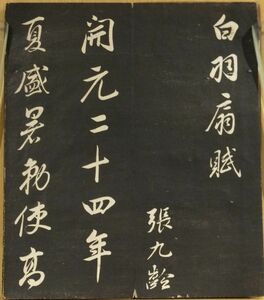 白羽扇賦
張九齡
開元二十四年
夏盛暑勅使高